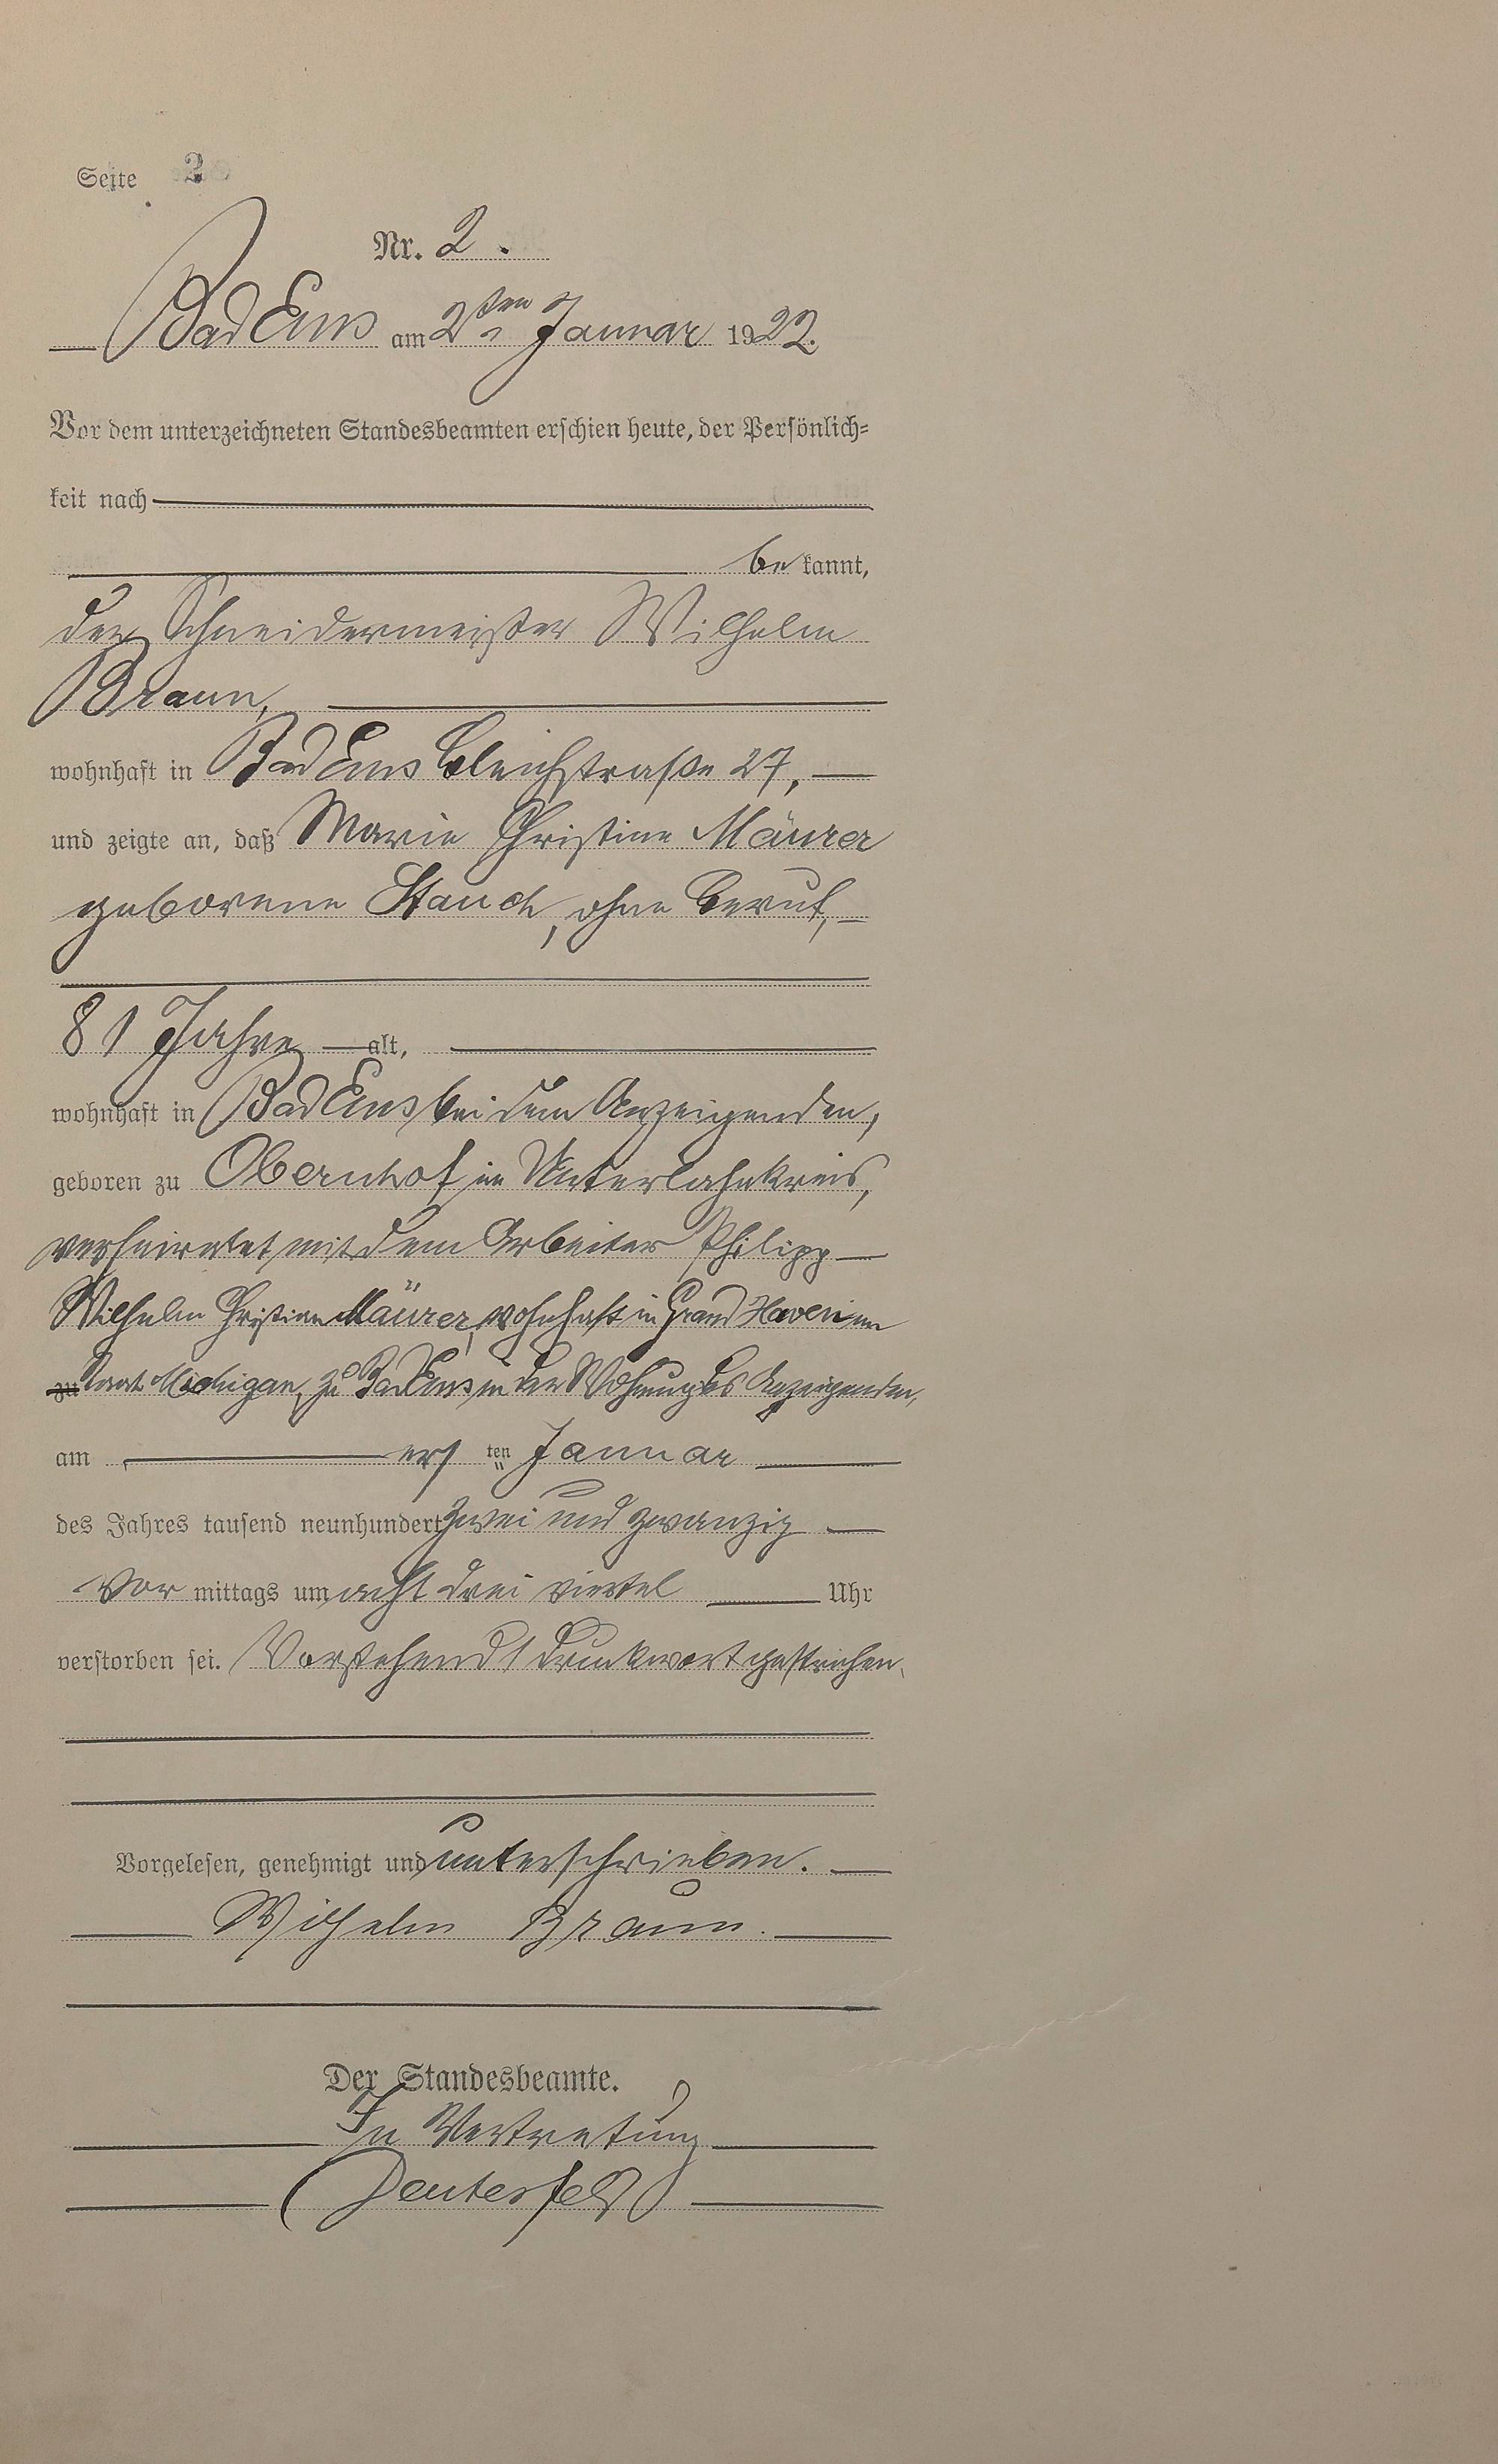 Seite 2
Nr. 2.
Bad Ems am 2ten Januar 1922.
Vor dem unterzeichneten Standesbeamten erschien heute, der Persönlich=
keit nach
be kannt,
der Schneidermeister Wilhelm
Braun,
wohnhaft in Bad Ems Bleichstraße 27,
und zeigte an, daß Marie Christine Mäurer
geborene Stauch, ohne Beruf,
81 Jahre alt,
wohnhaft in Bad Ems bei dem Anzeigenden,
geboren zu Obernhof im Unterlahnkreis,
verheiratet mit dem Arbeiter Philipp
Wilhelm Christian Mäurer, wohnhaft in Grand Haven im
zu Staat Michigan, zu Bad Ems in der Wohnung des Anzeigenden,
am ersten Januar
des Jahres tausend neunhundert zwei und zwanzig
Vor mittags um acht drei viertel Uhr
verstorben sei. Vorstehend 1 Druckwort gestrichen.
Vorgelesen, genehmigt und unterschrieben.
Wilhelm Braun.
Der Standesbeamte.
In Vertretung